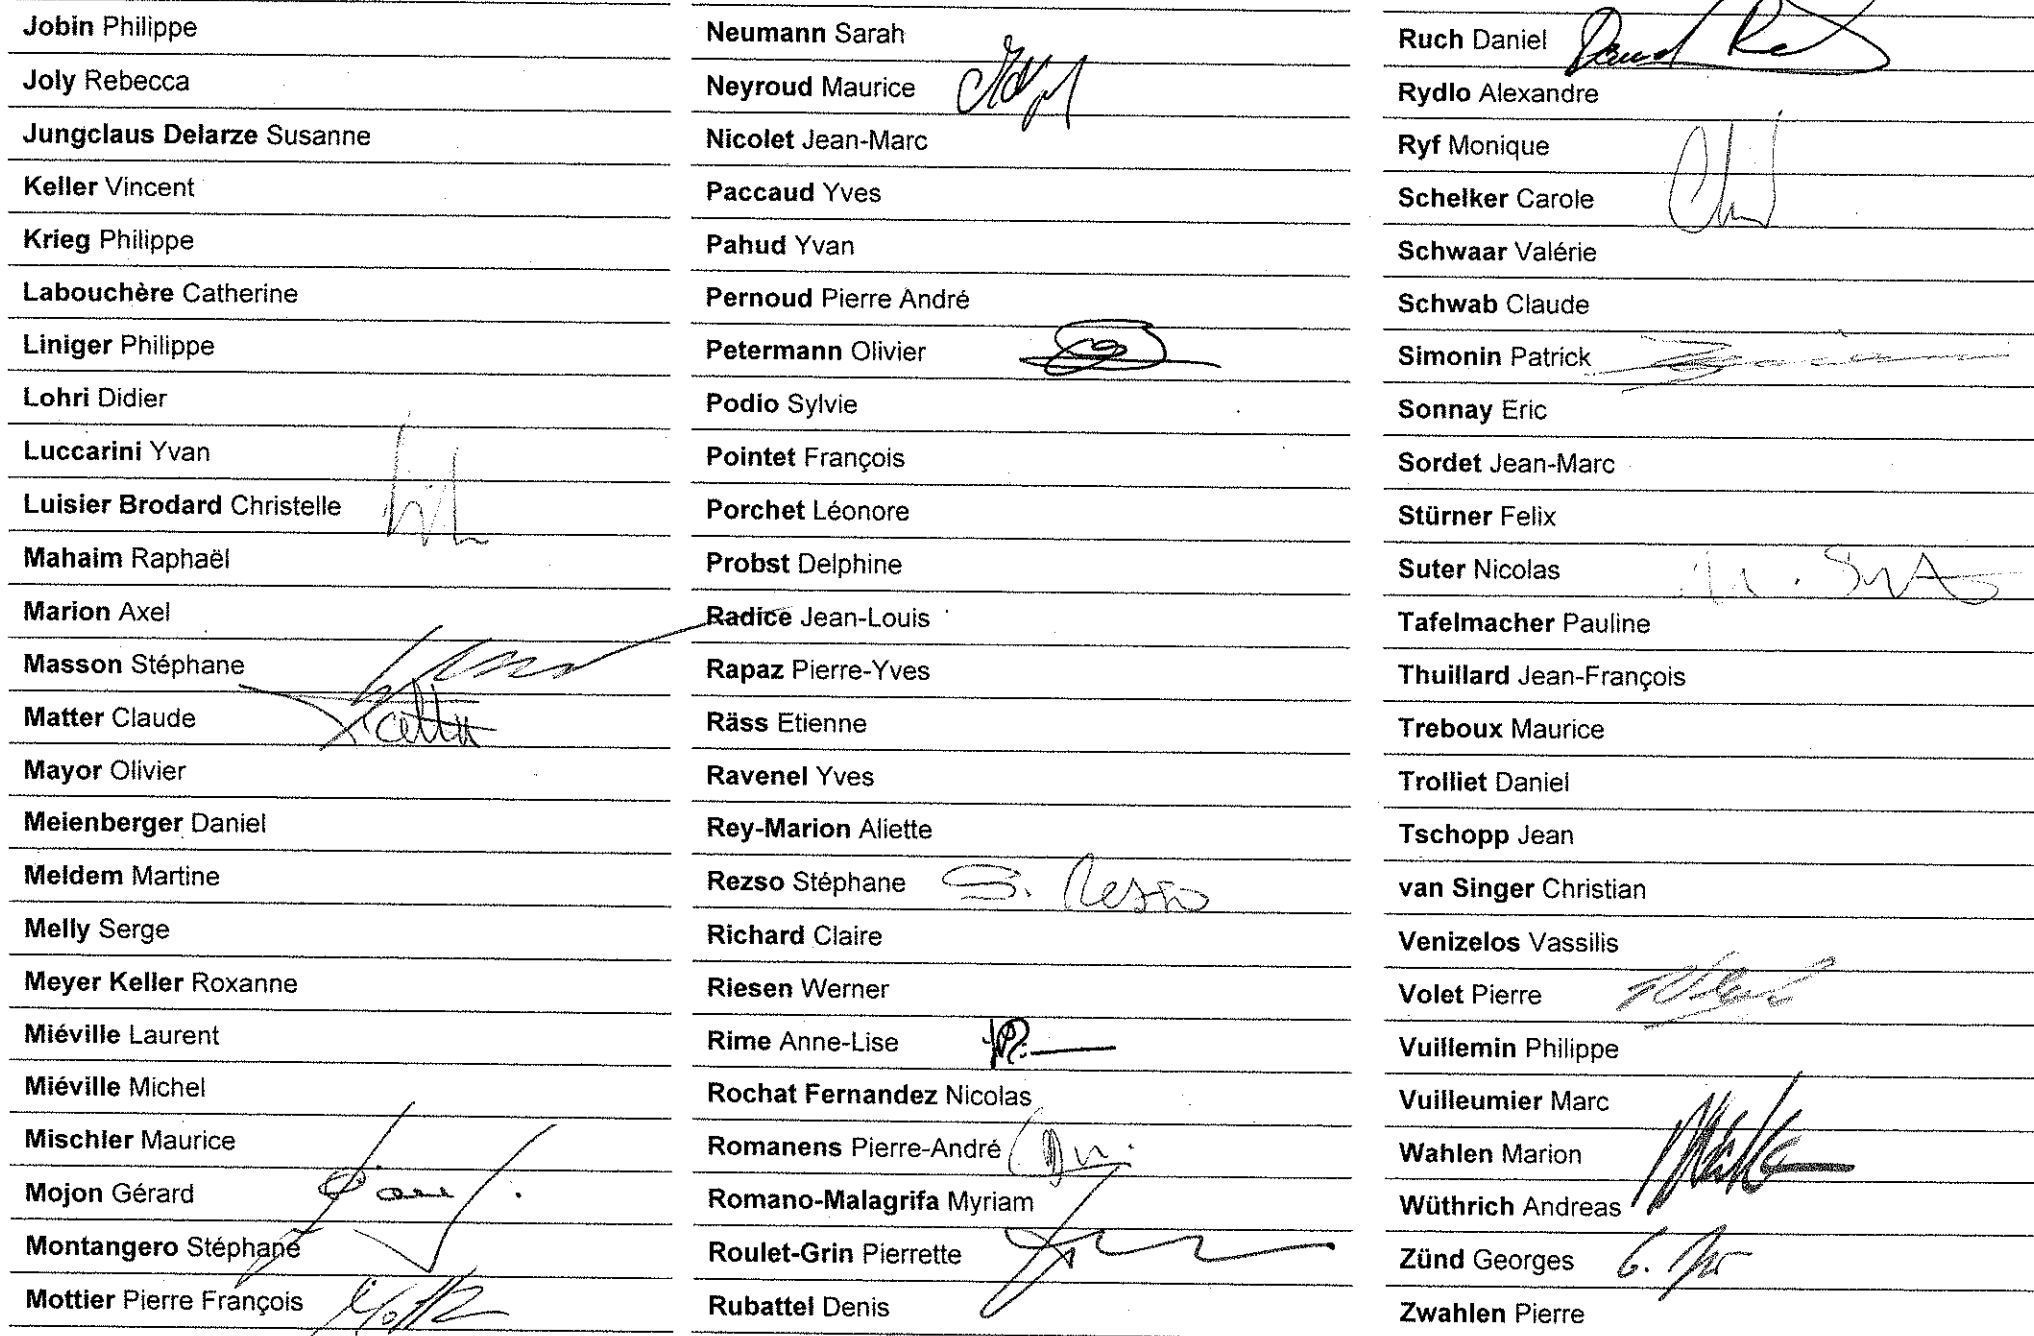 Jobin Philippe
Joly Rebecca
Jungclaus Delarze Susanne
Keller Vincent
Krieg Philippe
Labouchère Catherine
Liniger Philippe
Lohri Didier
Luccarini Yvan
Luisier Brodard Christelle
Mahaim Raphaël
Marion Axel
Masson Stéphane
Matter Claude
Mayor Olivier
Meienberger Daniel
Meldem Martine
Melly Serge
Meyer Keller Roxanne
Miéville Laurent
Miéville Michel
Mischler Maurice
Mojon Gérard
Montangero Stéphane
Mottier Pierre François
Neumann Sarah
Neyroud Maurice
Nicolet Jean-Marc
Paccaud Yves
Pahud Yvan
Pernoud Pierre André
Petermann Olivier
Podio Sylvie
Pointet François
Porchet Léonore
Probst Delphine
Radice Jean-Louis
Rapaz Pierre-Yves
Räss Etienne
Ravenel Yves
Rey-Marion Aliette
Rezso Stéphane S. Rezso
Richard Claire
Riesen Werner
Rime Anne-Lise
Rochat Fernandez Nicolas
Romanens Pierre-André
Romano-Malagrifa Myriam
Roulet-Grin Pierrette
Rubattel Denis
Ruch Daniel
Rydlo Alexandre
Ryf Monique
Schelker Carole
Schwaar Valérie
Schwab Claude
Simonin Patrick
Sonnay Eric
Sordet Jean-Marc
Stürner Felix
Suter Nicolas
Tafelmacher Pauline
Thuillard Jean-François
Treboux Maurice
Trolliet Daniel
Tschopp Jean
van Singer Christian
Venizelos Vassilis
Volet Pierre
Vuillemin Philippe
Vuilleumier Marc
Wahlen Marion
Wüthrich Andreas
Zünd Georges
Zwahlen Pierre